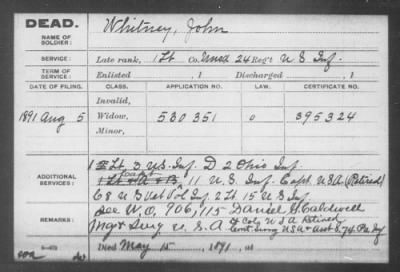 DEAD.
NAME OF SOLDIER: Whitney, John
SERVICE: Late rank, 1 Lt Co. Unas 24 Reg't U S Inf.
TERM OF SERVICE: Enlisted , 1 Discharged , 1
DATE OF FILING. CLASS. APPLICATION NO. LAW. CERTIFICATE NO.
Invalid,
1891 Aug 5 Widow, 530351 a 395324
Minor,
ADDITIONAL SERVICE: 1 Lt D U.S. Inf. D 2 Ohio Inf.
11 U.S. Inf. Capt. USA (Retired)
2 Lt 15 U S Inf
REMARKS: See W.O. 906,115 Daniel G Caldwell
Maj & Surg U.S.A Lt Col U S A Retired
74 Pa Inf
Died May 15, 1891, at